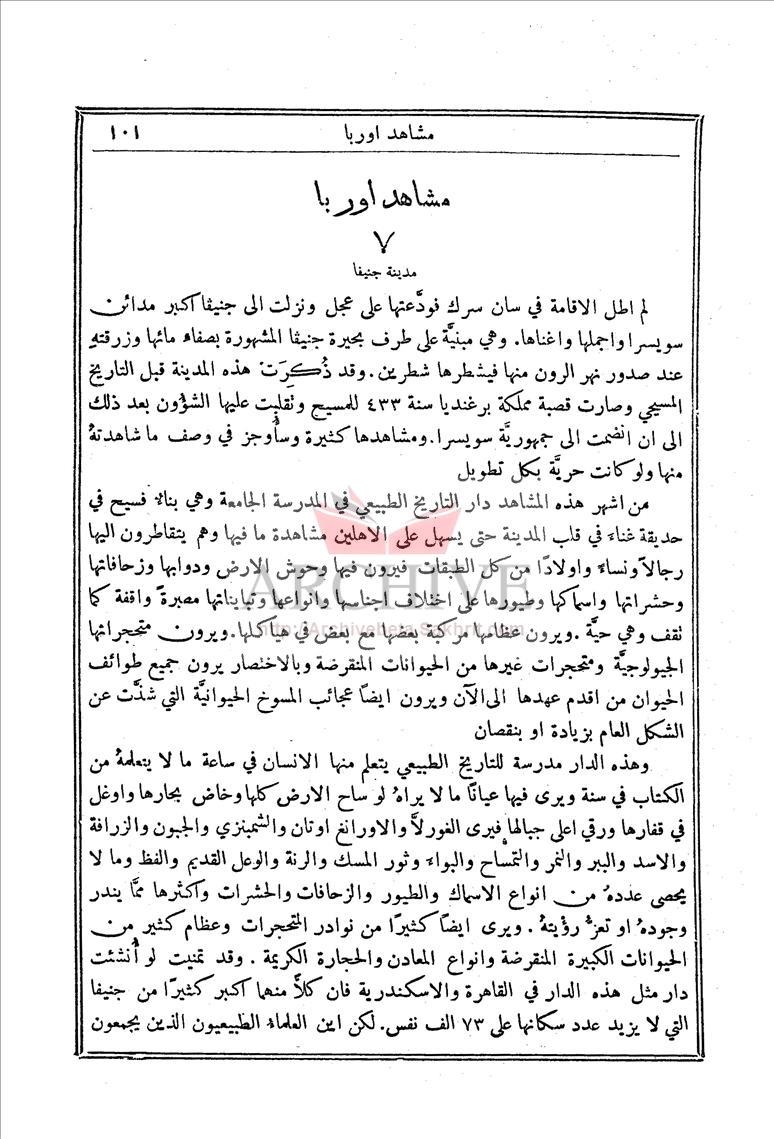 مشاهد اوربا ١٠١
مشاهد اوربا
٧
مدينة جنيفا
لم اطل الاقامة في سان سرك فودَّعتها على عجل ونزلت الى جنيڤا اكبر مدائن
سويسرا واجملها واغناها. وهي مبنيَّة على طرف بحيرة جنيڤا المشهورة بصفاء مائها وزرقتهِ
عند صدور نهر الرون منها فيشطرها شطرين. وقد ذُكِرَت هذه المدينة قبل التاريخ
المسيحي وصارت قصبة مملكة برغنديا سنة ٤٣٣ للمسيح وتقلبت عليها الشؤون بعد ذلك
الى ان انضمت الى جمهوريَّة سويسرا. ومشاهدها كثيرة وسأُوجز في وصف ما شاهدتهُ
منها ولو كانت حريَّة بكل تطويل
من اشهر هذه المشاهد دار التاريخ الطبيعي في المدرسة الجامعة وهي بناءٌ فسيح في
حديقة غناءَ في قلب المدينة حتى يسهل على الاهلين مشاهدة ما فيها وهم يتقاطرون اليها
رجالاً ونساءً واولادًا من كل الطبقات فيرون فيها وحوش الارض ودوابها وزحافاتها
وحشراتها واسماكها وطيورها على اختلاف اجناسها وانواعها وتبايناتها مصبرة واقفة كما
تقف وهي حيَّة. ويرون عظامها مركبة بعضها مع بعض في هياكلها. ويرون متحجراتها
الجيولوجيَّة ومتحجرات غيرها من الحيوانات المنقرضة وبالاختصار يرون جميع طوائف
الحيوان من اقدم عهدها الى الآن ويرون ايضًا عجائب المسوخ الحيوانيَّة التي شذَّت عن
الشكل العام بزيادة او بنقصان
وهذه الدار مدرسة للتاريخ الطبيعي يتعلم منها الانسان في ساعة ما لا يتعلمهُ من
الكتاب في سنة ويرى فيها عيانًا ما لا يراهُ لو ساح الارض كلها وخاض بحارها واوغل
في قفارها ورقي اعلى جبالها فيرى الغورلاَّ والاورانغ اوتان والشمبنزي والجبون والزرافة
والاسد والببر والنمر والتمساح والبواء وثور المسك والرنة والوعل القديم والفظ وما لا
يحصى عددهُ من انواع الاسماك والطيور والزحافات والحشرات واكثرها ممَّا يندر
وجودهُ او تعزُّ رؤيتهُ. ويرى ايضًا كثيرًا من نوادر المتحجرات وعظام كثير من
الحيوانات الكبيرة المنقرضة وانواع المعادن والحجارة الكريمة. وقد تمنيت لو أُنشئت
دار مثل هذه الدار في القاهرة والاسكندرية فان كلاًّ منهما اكبر كثيرًا من جنيفا
التي لا يزيد عدد سكانها على ٧٣ الف نفس. لكن اين العلماءُ الطبيعيون الذين يجمعون
ARCHIVE
http://Archivebeta.Sakhrit.com